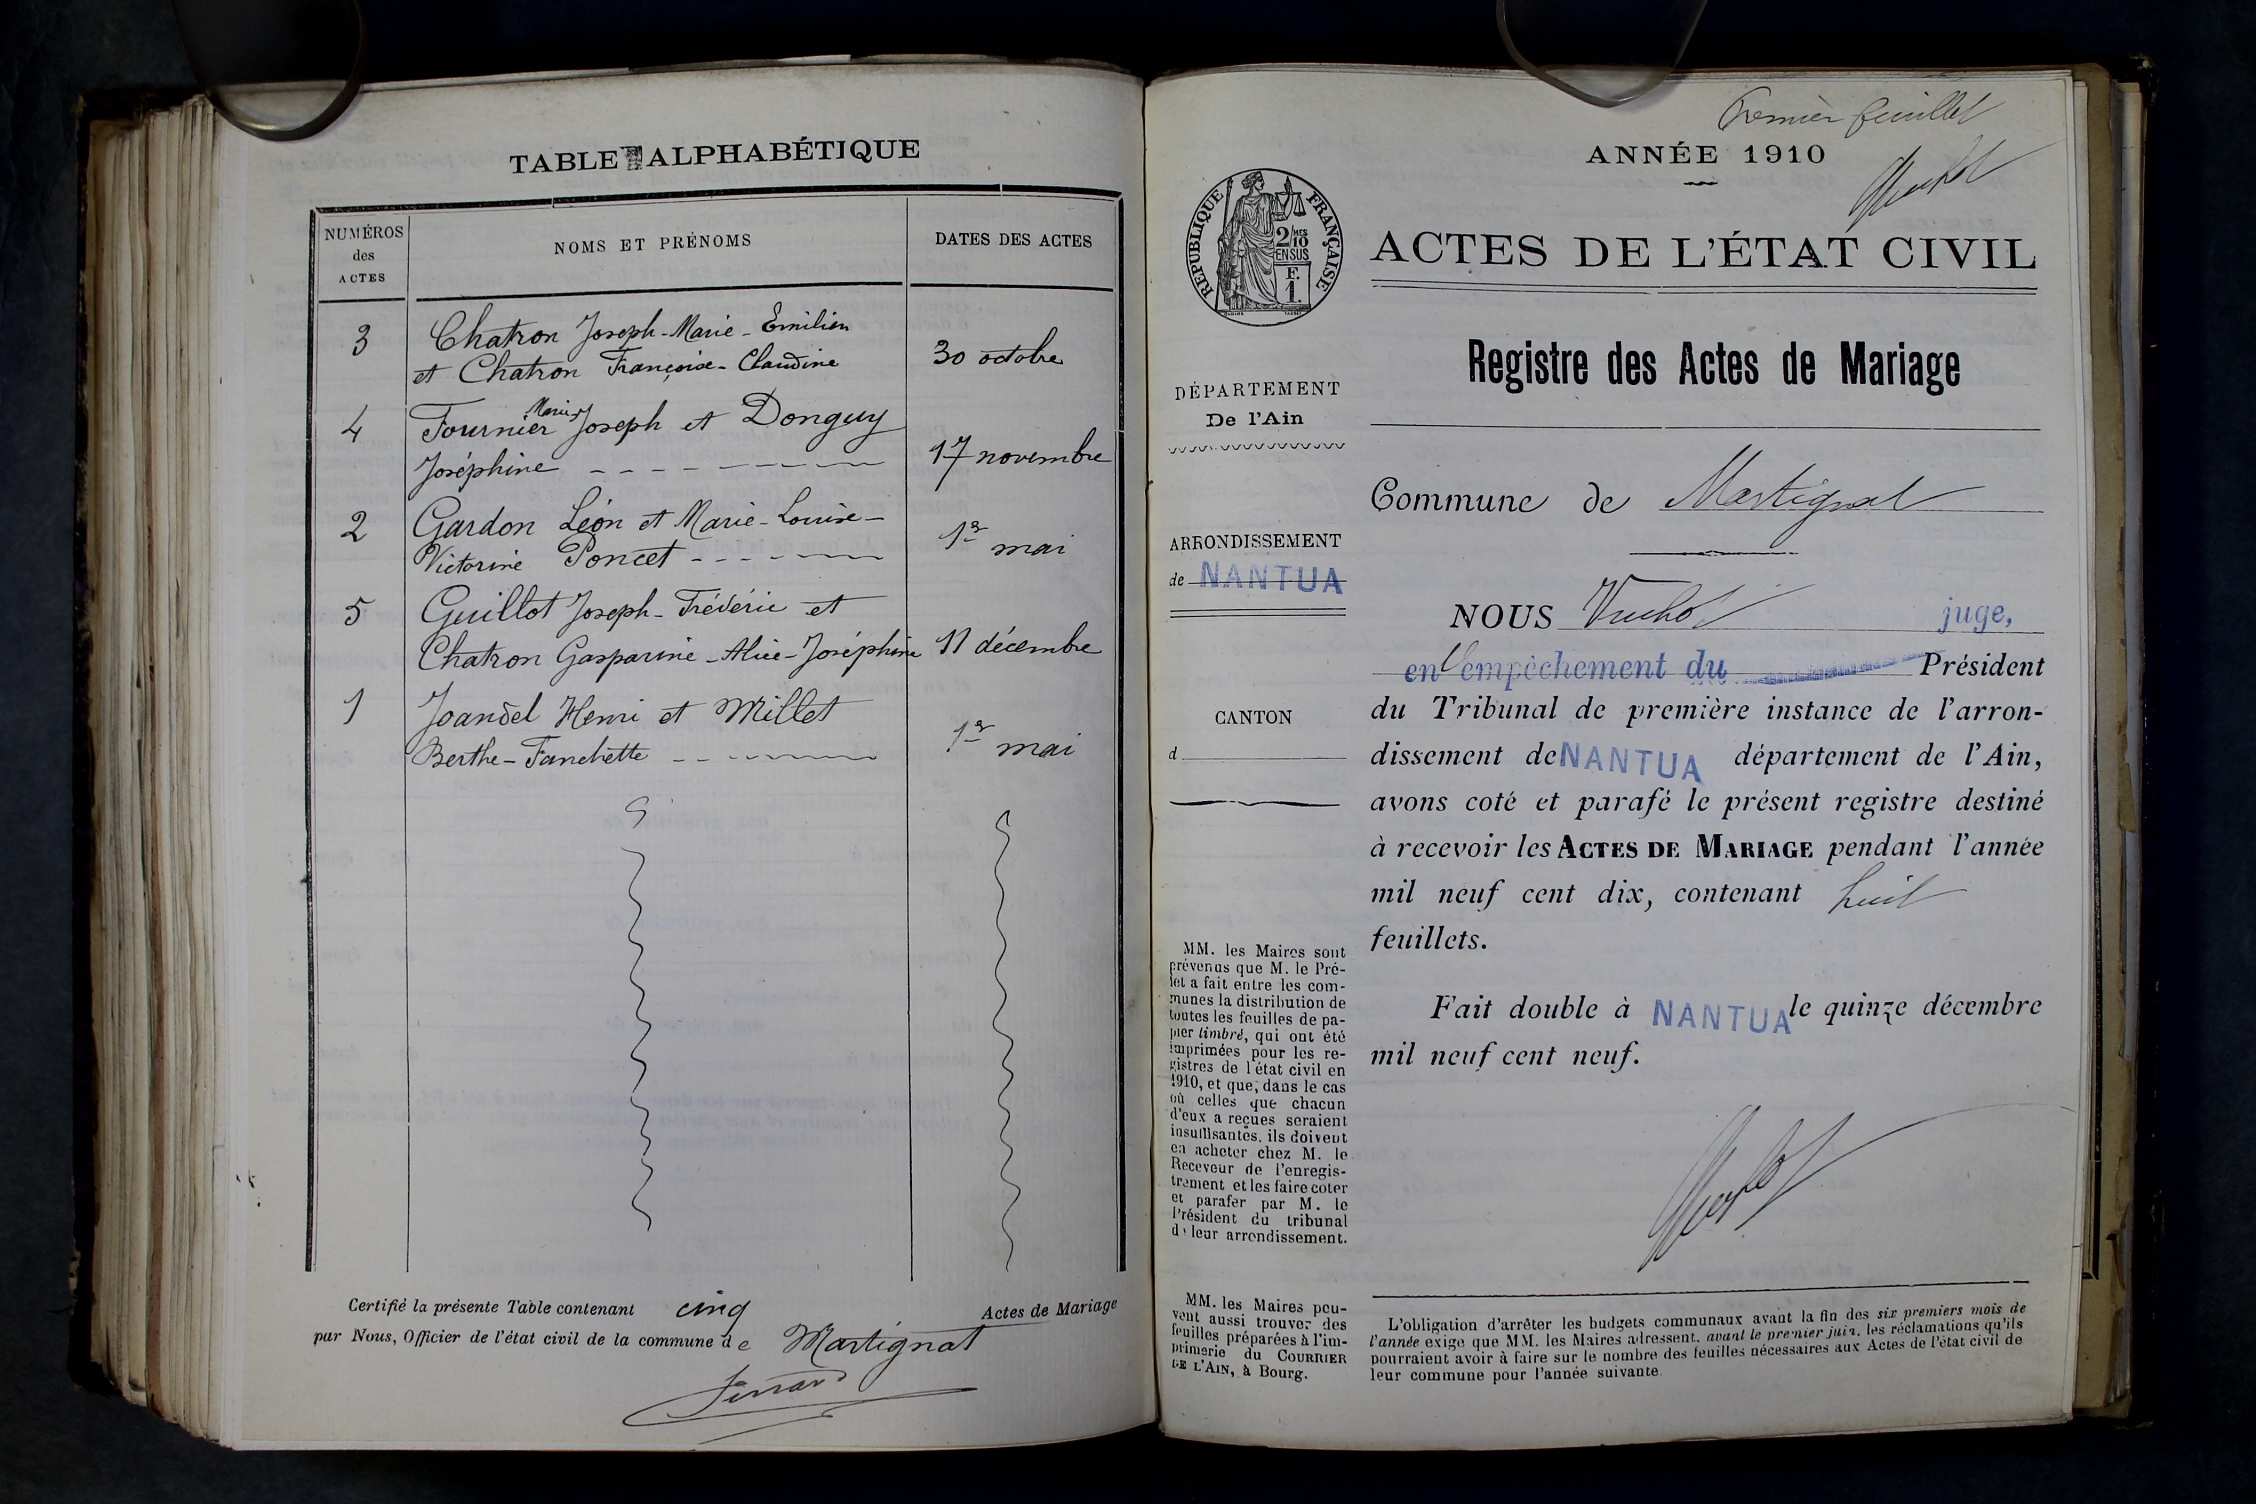 TABLE ALPHABÉTIQUE
NUMÉROS
des
ACTES
NOMS ET PRÉNOMS
DATES DES ACTES
3
Chatron Joseph-Marie-Émilien
et Chatron Françoise-Claudine
30 octobre
4
Fournier Marie Joseph et Donguy
Joséphine
17 novembre
2
Gardon Léon et Marie-Louise-
Victorine Poncet
1er mai
5
Guillot Joseph-Frédéric et
Chatron Gasparine-Alice-Joséphine
11 décembre
1
Joandel Henri et Millet
Berthe-Fanchette
1er mai
Certifié la présente Table contenant cinq Actes de Mariage
par Nous, Officier de l'état civil de la commune de Martignat
Premier feuillet
ANNÉE 1910
RÉPUBLIQUE FRANÇAISE
2/10 MES
EN SUS
F.
1.
ACTES DE L'ÉTAT CIVIL
Registre des Actes de Mariage
DÉPARTEMENT
De l'Ain
ARRONDISSEMENT
de NANTUA
CANTON
d
MM. les Maires sont
prévenus que M. le Pré-
fet a fait entre les com-
munes la distribution de
toutes les feuilles de pa-
pier timbré, qui ont été
imprimées pour les re-
gistres de l'état civil en
1910, et que, dans le cas
où celles que chacun
d'eux a reçues seraient
insuffisantes, ils doivent
en acheter chez M. le
Receveur de l'enregis-
trement et les faire coter
et parafer par M. le
Président du tribunal
de leur arrondissement.
MM. les Maires peu-
vent aussi trouver des
feuilles préparées à l'im-
primerie du COURRIER
DE L'AIN, à Bourg.
Commune de Martignat
NOUS Vuchot juge,
en l'empêchement du Président
du Tribunal de première instance de l'arron-
dissement de NANTUA département de l'Ain,
avons coté et parafé le présent registre destiné
à recevoir les ACTES DE MARIAGE pendant l'année
mil neuf cent dix, contenant huit
feuillets.
Fait double à NANTUA le quinze décembre
mil neuf cent neuf.
L'obligation d'arrêter les budgets communaux avant la fin des six premiers mois de
l'année exige que MM. les Maires adressent, avant le premier juin, les réclamations qu'ils
pourraient avoir à faire sur le nombre des feuilles nécessaires aux Actes de l'état civil de
leur commune pour l'année suivante.